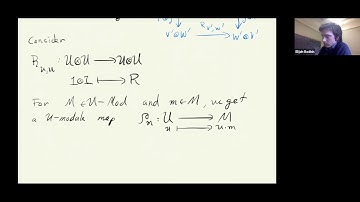 V'⊗W' R_{V',W'} W'⊗V'
Consider
R_{U,U} : U⊗U ⟶ U⊗U
1⊗1 ⟼ R
For M ∈ U-Mod and m ∈ M, we get
a U-module map ρ_m : U ⟶ M
u ⟼ u·m
Elijah Bodish